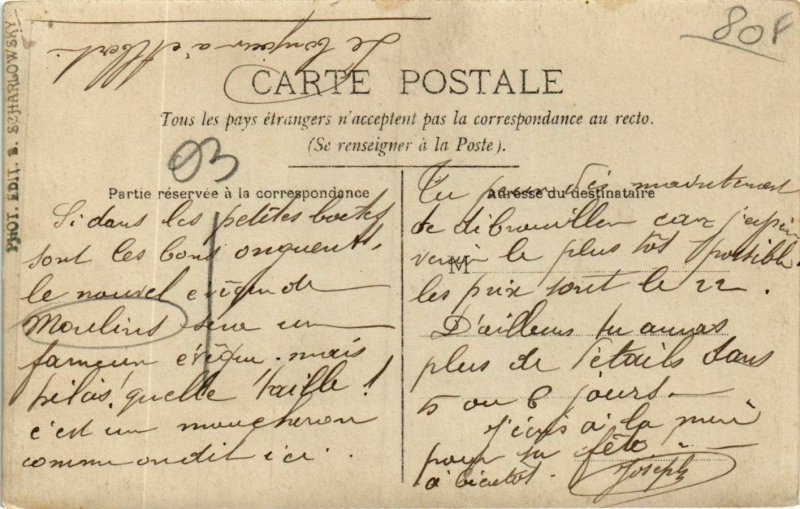 808
Le bonjour à Albert.
PHOT. EDIT. B. SCHARLOWSKY
CARTE POSTALE
Tous les pays étrangers n'acceptent pas la correspondance au recto.
(Se renseigner à la Poste).
03
Partie réservée à la correspondance
Adresse du destinataire
M
Si dans les petites boites
sont les bons onguents,
le nouvel evêque de
Moulins sera un
fameux evêque. mais
hélas! quelle taille!
c'est un moucheron
comme on dit ici.
Tu peux dès maintenant
te débrouiller car j'espère
venir le plus tôt possible.
les prix sont le 22.
D'ailleurs tu auras
plus de détails dans
5 ou 6 jours.
J'écris à la
pour sa fête.
à bientôt. Joseph